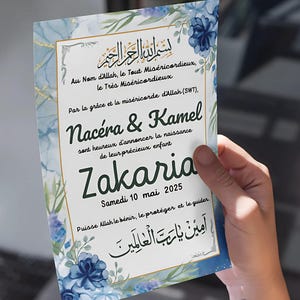 بسم الله الرحمن الرحيم
Au Nom d'Allah, le Tout Miséricordieux,
le Très Miséricordieux
Par la grâce et la miséricorde d'Allah (SWT),
Nacéra & Kamel
sont heureux d'annoncer la naissance
de leur précieux enfant
Zakaria
Samedi 10 mai 2025
Puisse Allah le bénir, le protéger et le guider
آمين يا رب العالمين